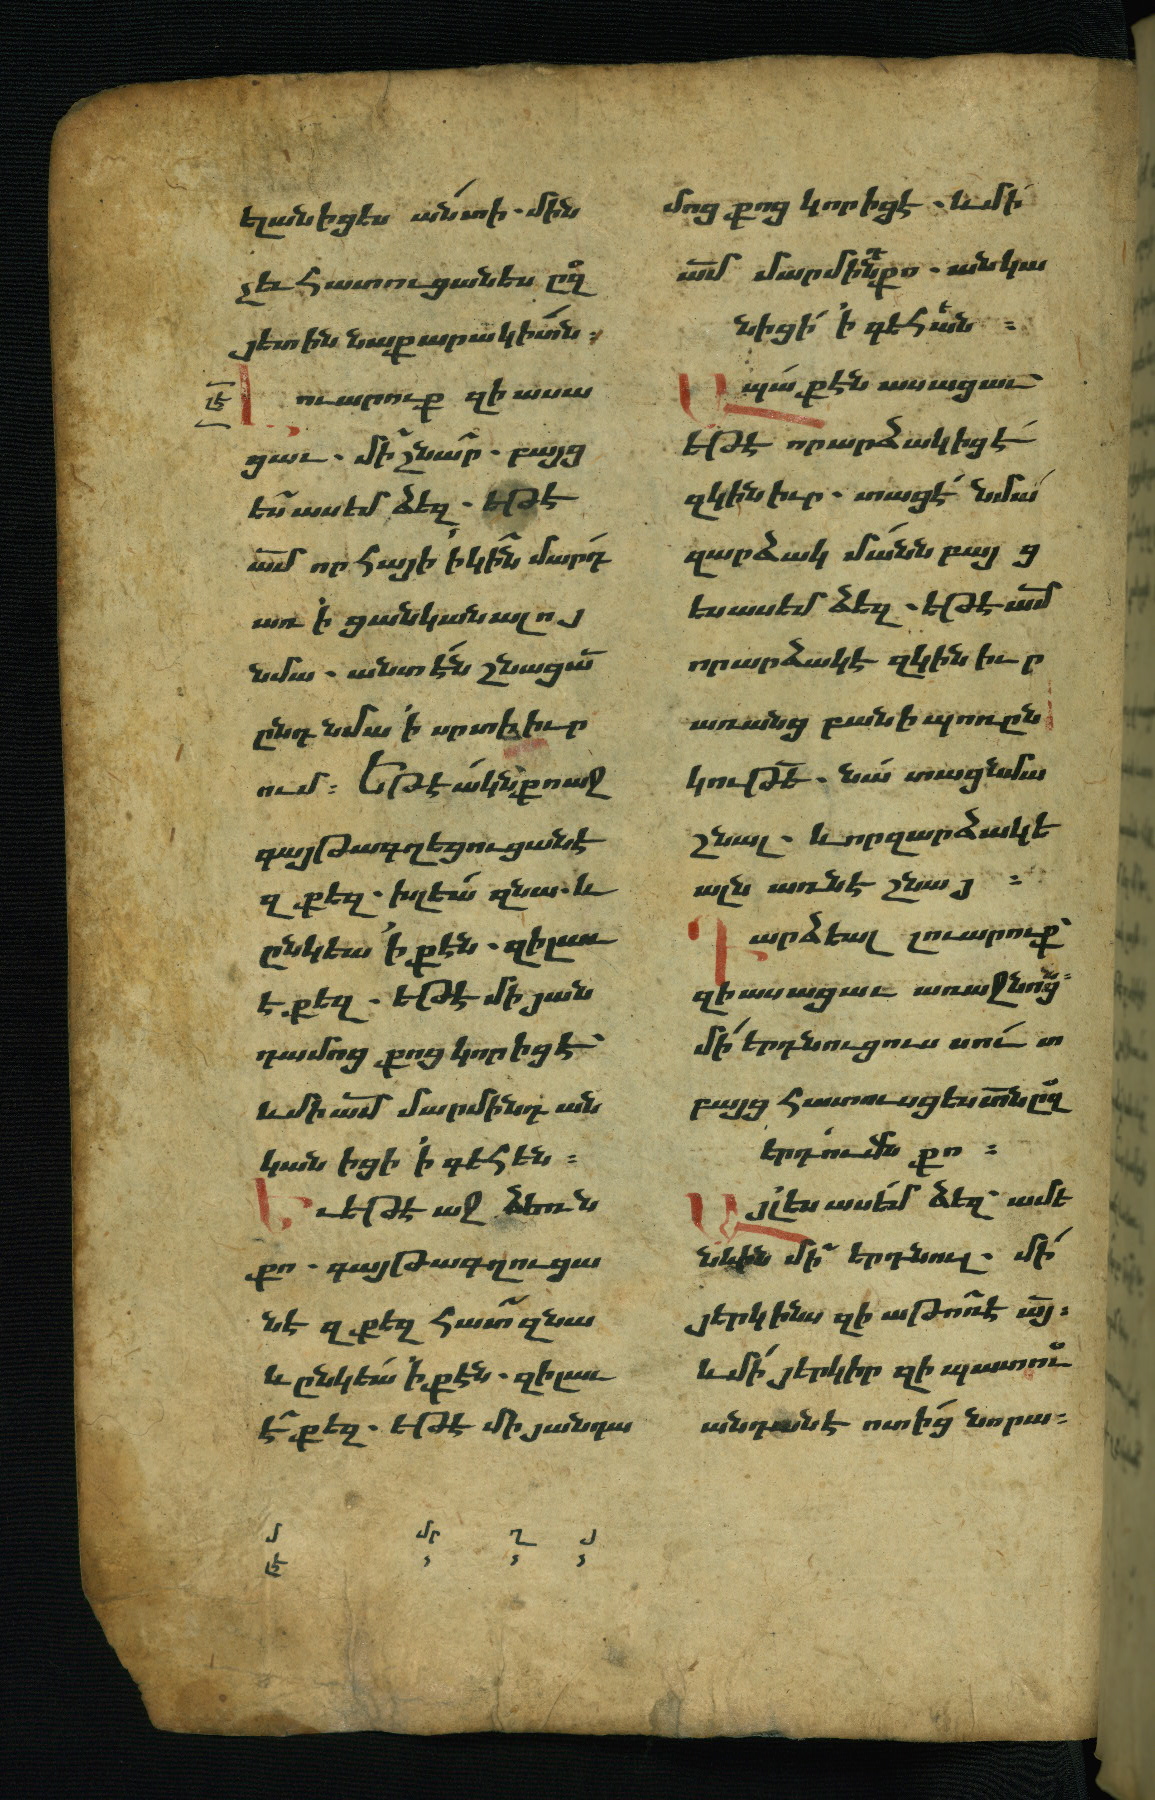 ելանիցես անտի. մին
չեւ հատուցանես ըզ
յետին նաքարակիտն։
լէ
Լ ուարուք զի ասա
ցաւ. մի շնար. բայց
ես ասեմ ձեզ. եթէ
ամ որ հայի ի կին մարդ
առ ի ցանկանալոյ
նմա. անտէն շնացաւ
ընդ նմա ի սրտի իւր
ում։ Եթէ ակն քո աջ
գայթագղեցուցանէ
զքեզ. խլեա զնա. և
ընկեա ի քէն. զի լաւ
է քեզ. եթէ մի յան
դամոց քոց կորիցէ
և մի ամ մարմինդ ան
կանիցի ի գեհեն։
Ե ւ եթէ աջ ձեռն
քո. գայթագղուցա
նէ զքեզ հատ զնա
և ընկեա ի քէն. զի լաւ
է քեզ. եթէ մի յանդա
մոց քոց կորիցէ. և մի
ամ մարմինդ քո. անկա
նիցի ի գեհեն։
Ա պա քէն ասացաւ
եթէ որ արձակիցէ
զկին իւր. տացէ նմա
զարձակ մանն բայց
ես ասեմ ձեզ. եթէ ամ
որ արձակէ զկին իւր
առանց բանի պոռըն
կութե. նա տայ նմա
շնալ. և որ զարձակե
ալն առնէ շնայ։
Դ արձեալ լուարուք
զի ասացաւ առաջնոցն
մի երդնուցուս սուտ
բայց հատուսցես տն ըզ
երդումն քո։
Ա յլ ես ասեմ ձեզ ամե
նևին մի երդնուլ. մի
յերկինս զի աթոռ է այ։
և մի յերկիր զի պատու
անդան է ոտից նորա։
մ մր ղ յ
լէ